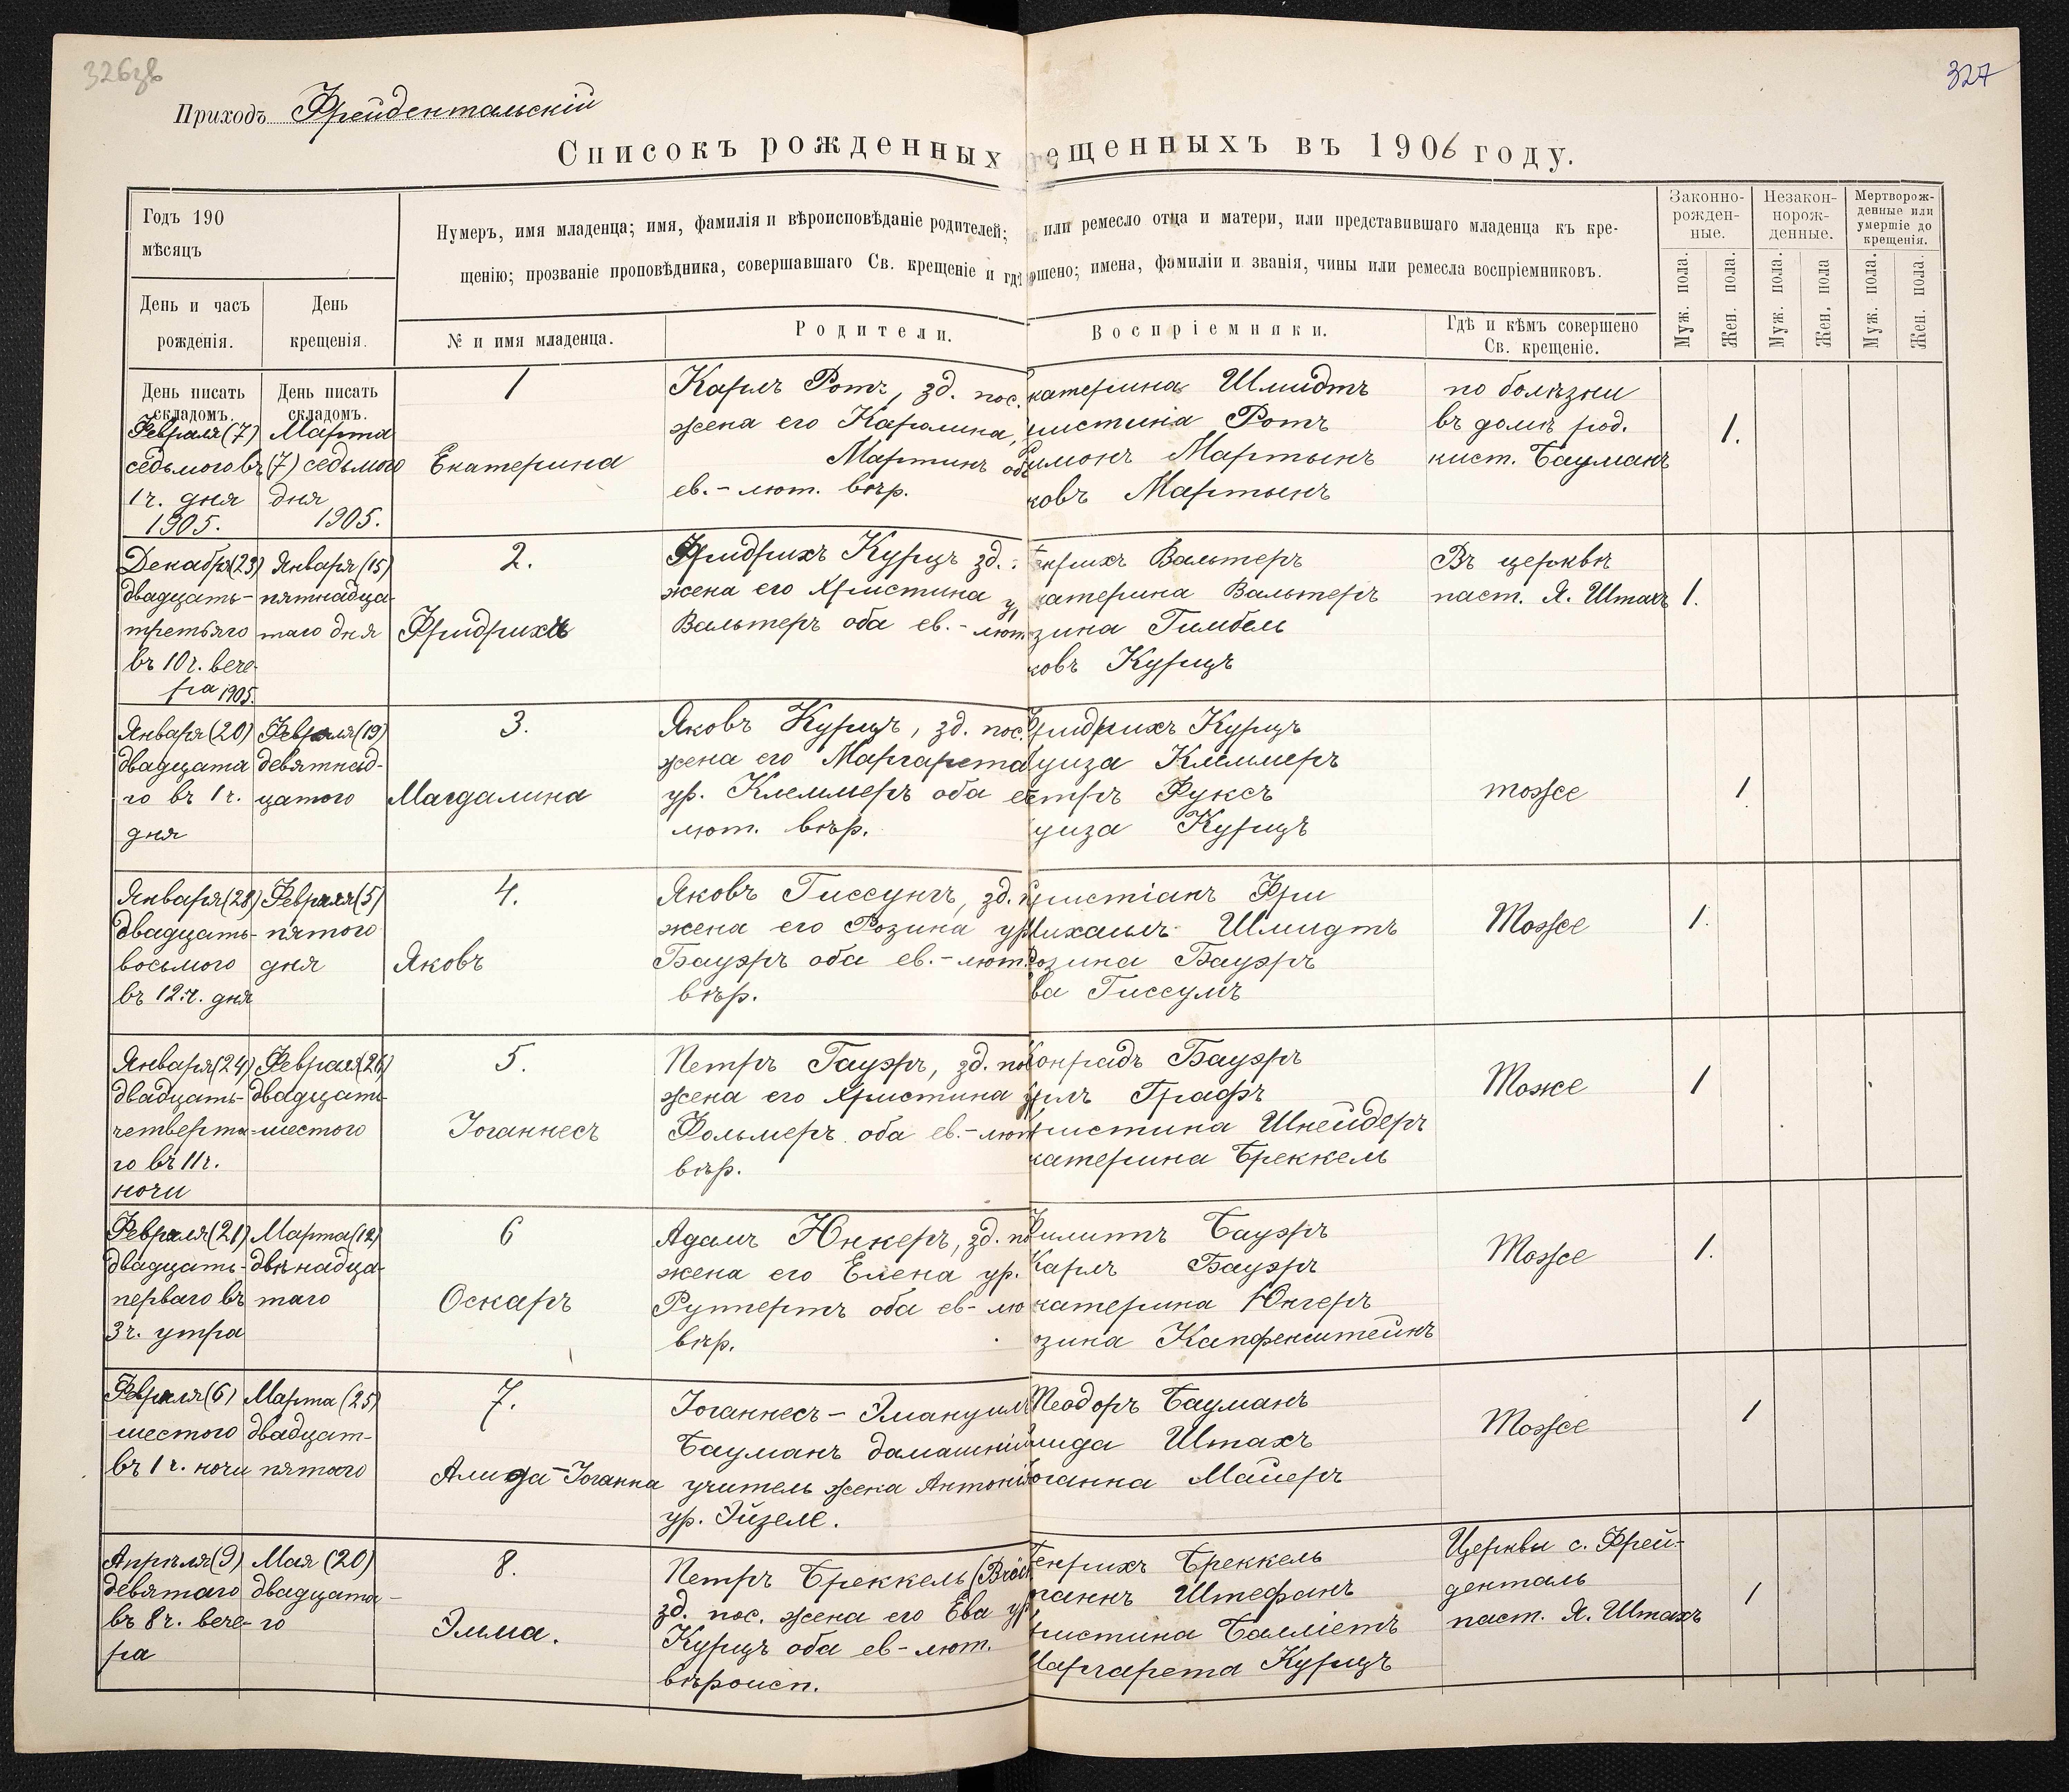 326
327
Приходъ Фрейдентальскій
Списокъ рожденныхъ рещенныхъ въ 1906 году.
Годъ 190
мѣсяцъ
День и часъ
рожденія.
День
крещенія.
Нумеръ, имя младенца; имя, фамилія и вѣроисповѣданіе родителей; или ремесло отца и матери, или представившаго младенца къ кре-
щенію; прозваніе проповѣдника, совершавшаго Св. крещеніе и гдѣ ршено; имена, фамиліи и званія, чины или ремесла воспріемниковъ.
№ и имя младенца.
Родители.
Воспріемники.
Гдѣ и кѣмъ совершено
Св. крещеніе.
Законно-
рожден-
ные.
Незакон-
норож-
денные.
Мертворож-
денные или
умершіе до
крещенія.
Муж. пола.
Жен. пола.
Муж. пола.
Жен. пола
Муж. пола.
Жен. пола.
День писать
складомъ.
Февраля (7)
седьмого въ
1 ч. дня
1905.
День писать
складомъ.
Марта
(7) седьмого
дня
1905.
1
Екатерина
Карлъ Ротъ, зд. пос.
жена его Каролина,
Мартинъ оба
ев.-лют. вѣр.
катерина Шмидтъ
истина Ротъ
имонъ Мартынъ
ковъ Мартынъ
по болѣзни
въ домѣ род.
кист. Бауманъ
1.
Декабря (23)
двадцать-
третьяго
въ 10 ч. вече-
ра 1905.
Января (15)
пятнадца-
таго дня
2.
Фридрихъ
Фридрихъ Курцъ зд.
жена его Христина у
Вальтеръ оба ев.-лют
енрихъ Вальтеръ
катерина Вальтеръ
зина Гимбель
ковъ Курцъ
Въ церквѣ
паст. Я. Штахъ
1.
Января (20)
двадцата
го въ 1 ч.
дня
Февраля (19)
девятнад-
цатого
3.
Магдалина
Яковъ Курцъ, зд. пос.
жена его Маргарета
ур. Клеммеръ оба ев
лют. вѣр.
Фридрихъ Курцъ
уиза Клеммеръ
етръ Фуксъ
уиза Курцъ
тоже
1
Января (28)
двадцать-
восьмого
въ 12 ч. дня
Февраля (5)
пятого
дня
4.
Яковъ
Яковъ Гиссунгъ, зд.
жена его Розина ур
Бауэръ оба ев.-лют.
вѣр.
ристіанъ Фри
Михаилъ Шмидтъ
озина Бауэръ
ва Гиссумъ
Тоже
1.
Января (24)
двадцать-
четверта-
го въ 11 ч.
ночи
Февраля (26)
двадцать-
шестого
5.
Іоганнесъ
Петръ Гауэръ, зд. по
жена его Христина
Фольмеръ оба ев.-лют
вѣр.
Конрадъ Бауэръ
рлъ Графъ
ристина Шнейдеръ
катерина Бреккель
Тоже
1
Февраля (21)
двадцать-
перваго въ
3 ч. утра
Марта (12)
двѣнадца-
таго
6
Оскаръ
Адамъ Юнкеръ, зд. п
жена его Елена ур.
Руппертъ оба ев-лю
вѣр.
Филиппъ Бауэръ
Карлъ Бауэръ
катерина Юнгеръ
зина Капфенштейнъ
Тоже
1.
Февраля (6)
шестого
въ 1 ч. ночи
Марта (25)
двадцат-
пятаго
7.
Алида-Іоганна
Іоганнесъ-Эмануил
Бауманъ домашній
учитель жена Антоні
ур. Эйзеле.
Теодоръ Бауманъ
лида Штахъ
Іоганна Майеръ
Тоже
1
Апрѣля (9)
девятаго
въ 8 ч. вече-
ра
Мая (20)
двадцата-
го
8.
Эмма.
Петръ Бреккель (Bröck
зд. пос. жена его Ева ур
Курцъ оба ев-лют.
вѣроисп.
Генрихъ Бреккель
ганнъ Штефанъ
ристина Балліетъ
Маргарета Курцъ
Церквы с. Фрей-
денталь
паст. Я. Штахъ
1